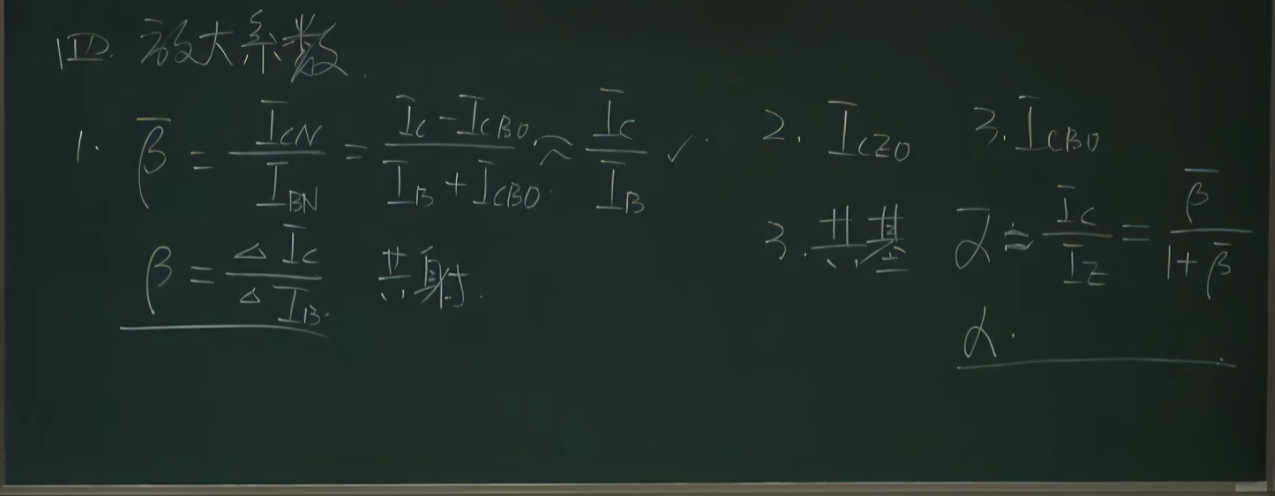 四. 放大系数.
1. β̄ = I_CN / I_BN = (I_C - I_CBO) / (I_B + I_CBO) ≈ I_C / I_B ✓
β = △I_C / △I_B. 共射.
2. I_CZO 3. I_CBO
3. 共基 ᾱ ≈ I_C / I_Z = β̄ / (1 + β̄)
α.